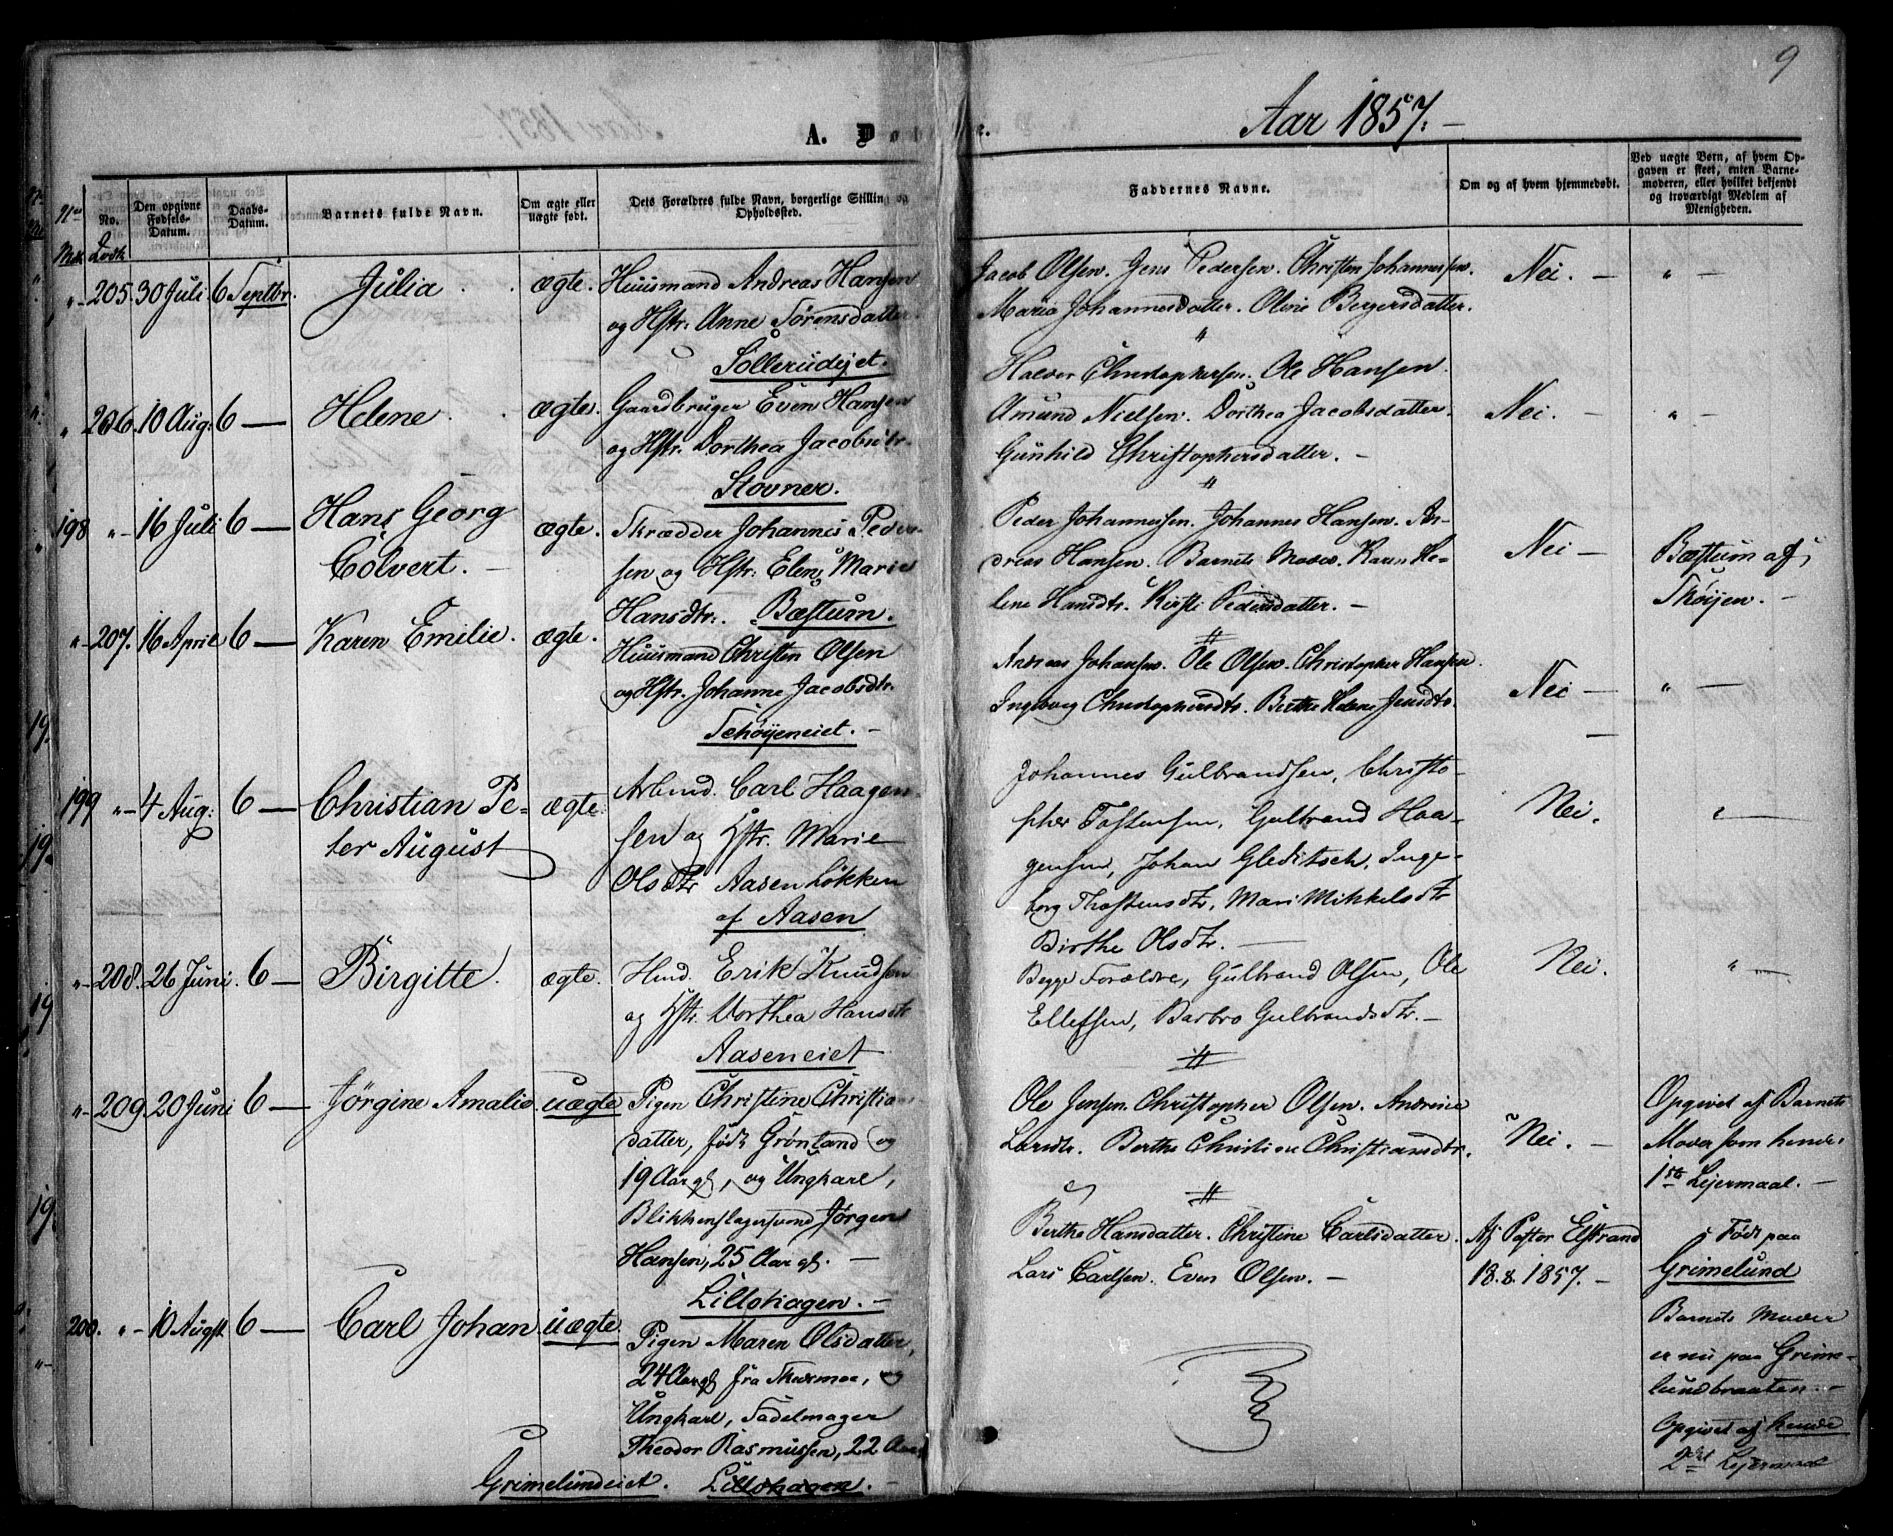 9
Aar 1857.
A. Døbte.
No.
Den opgivne Fødsels-Datum.
Daabs-Datum.
Barnets fulde Navn.
Om ægte eller uægte født.
Dets Forældres fulde Navn, borgerlige Stilling og Opholdssted.
Faddernes Navne.
Om og af hvem hjemmedøbt.
Ved uægte Børn, af hvem Opgaven er skeet, enten Barnemoderen, eller hvilket bekjendt og troværdigt Medlem af Menigheden.
"- 205. 30 Juli. 6 Septbr. Julia. ægte. Huusmand Andreas Hansen
og Hstr. Anne Sørensdatter.
Sollerudejet.
Jacob Olsen. Jens Pedersen. Christen Johannessen.
Maria Johannesdatter. Oline Bergersdatter.
Nei. — " —
" 206. 10 Aug. 6 — Helene. ægte. Gaardbruger Even Hansen
og Hstr. Dorthea Jacobsdtr.
Stovner.
Halvor Christophersen. Ole Hansen.
Amund Nielsen. Dorthea Jacobsdatter.
Gunhild Christophersdatter. —
Nei. — " —
198 "- 16 Juli 6 — Hans Georg
Colvert. —
ægte. Skrædder Johannes Peder-
sen og Hstr. Elen Marie
Hansdtr. Bæstum.
Peder Johannessen. Johannes Hansen. An-
dreas Hansen. Barnets Moder. Karen He-
lene Hansdtr. Kirsti Pedersdatter. —
Nei — Bæstum af
Skøijen. —
"- 207. 16 April 6 — Karen Emilie. ægte. Huusmand Christen Olsen
og Hstr. Johanne Jacobsdtr.
Schøijeneiet. —
Andreas Johansen. Ole Olsen. Christopher Hansen.
Ingeborg Christophersdtr. Berthe Helene Jensdtr.
Nei — " —
199 "- 4 Aug. 6 — Christian Pe-
ter August
ægte. Arbmd. Carl Haagen-
sen og Hstr. Marie
Olsdtr Aasen Løkken
af Aasen
Johannes Gulbrandsen, Christo-
pher Tostensen, Gulbrand Haa-
gensen, Johan Gleditsch, Inge-
borg Thostensdtr, Mari Mikkelsdtr
Birthe Olsdtr. —
Nei. " —
"- 208. 26 Juni. 6 — Birgitte. ægte. Hmd. Erik Knudsen
og Hstr. Dorthea Hansdtr
Aaseneiet
Begge Forældre, Gulbrand Olsen, Ole
Ellefsen, Barbro Gulbrandsdtr. —
Nei. " —
"- 209. 20 Juni 6 — Jørgine Amalie. uægte Pigen Christine Christians
datter, født Grønland og
19 Aar gl, og Ungkarl,
Blikkenslagersvend Jørgen
Hansen, 25 Aar gl. —
Lillohagen. —
Ole Jensen. Christopher Olsen. Andrine
Larsdtr. Berthe Christine Christiansdtr.
Nei. — Opgivet af Barnets
Moder som hendes
1ste Lejermaal. —
200. "- 10 Augst 6 — Carl Johan uægte. Pigen Maren Olsdatter,
24 Aar gl fra Skedsmoe, og
Ungkarl, Sadelmager
Theodor Rasmussen, 22 Aar
Grimelundeiet. Lillohagen. —
Berthe Hansdatter. Christine Carlsdatter.
Lars Carlsen. Even Olsen. —
Af Pastor Elstrand
18.8.1857. —
Født paa
Grimelund
Barnets Moder
er nu paa Grime-
lundbraaten. —
Opgivet af hende
2det Lejermaal